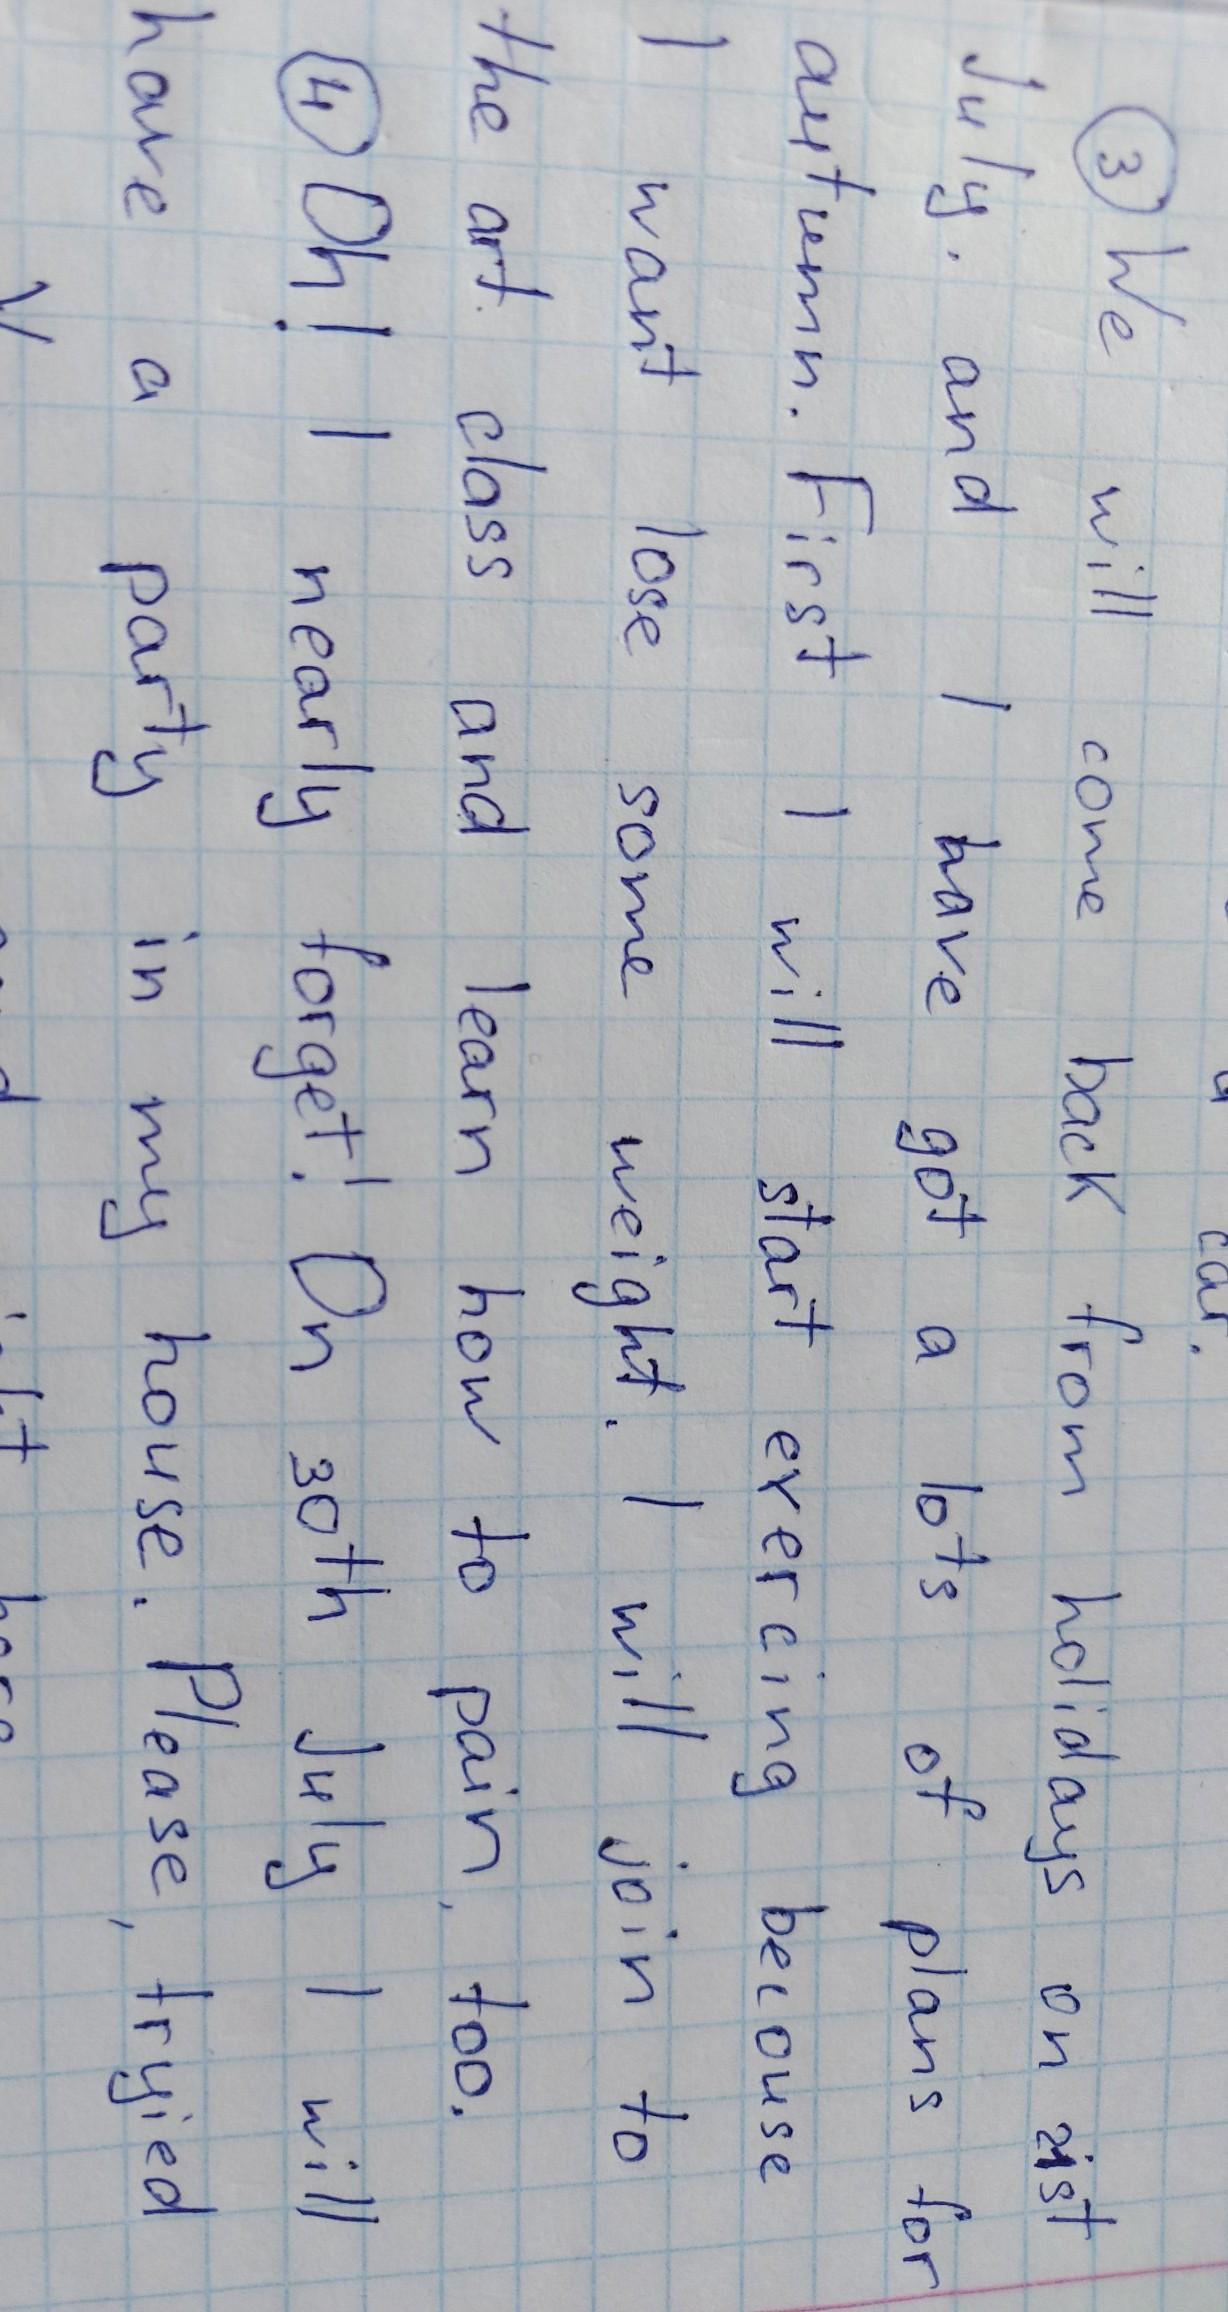 car.
③ We will come back from holidays on 21st
July. and I have got a lots of plans for
autumn. First I will start exercing becouse
I want lose some weight. I will join to
the art class and learn how to pain, too.
④ Oh! I nearly forget! On 30th July I will
have a party in my house. Please, tryied